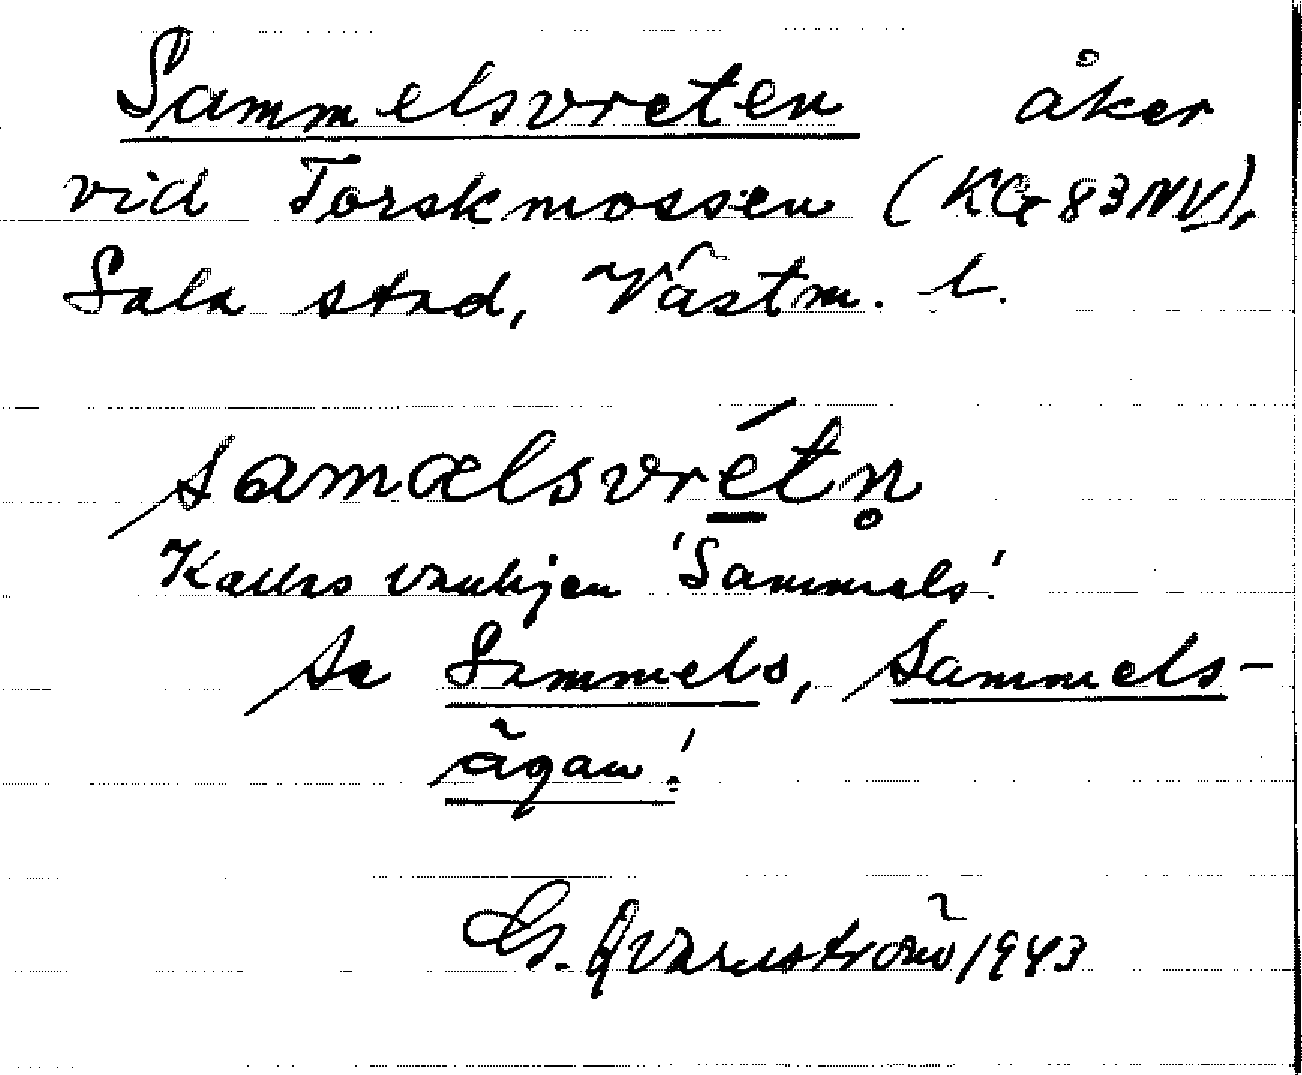 Sammelsvreten åker
vid Torskmossen (KG 83 NV),
Sala stad, Västm. l.
samælsvré̲tn̥
Kallas vanligen 'Sammels'.
Se Sammels, Sammels-
ägan!
G. Qvarnström 1943